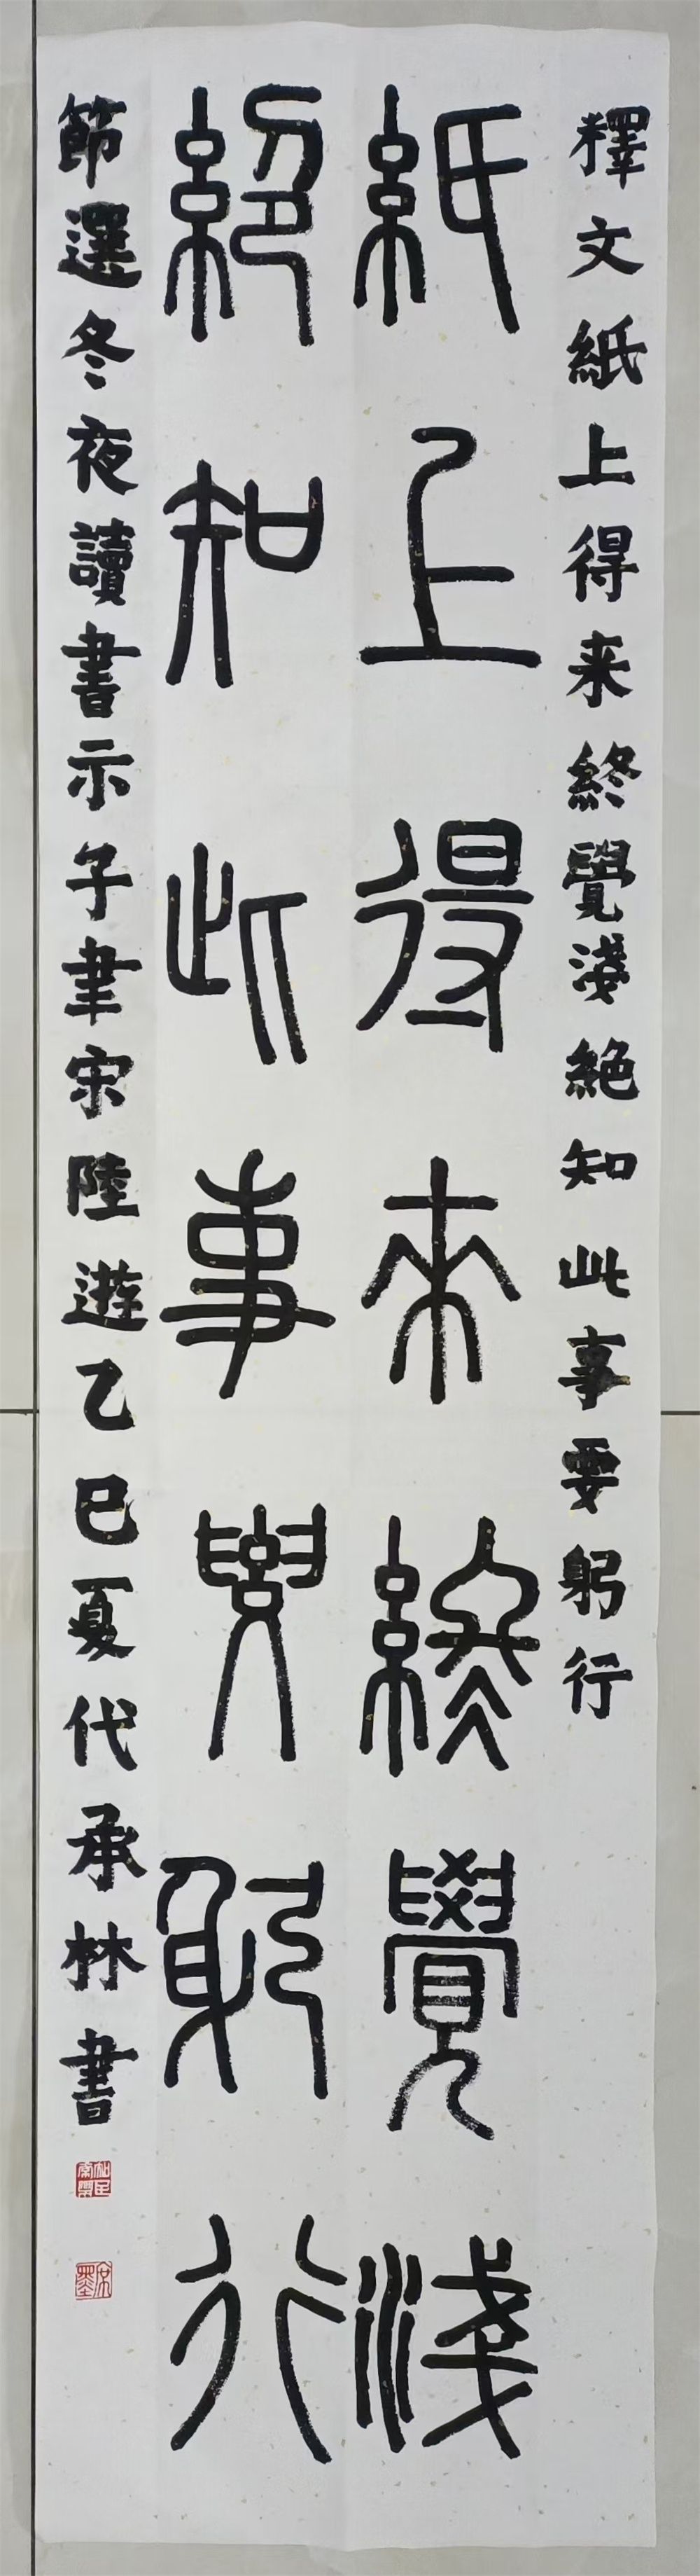 釋文紙上得来終覺淺絶知此事要躬行
紙上得來終覺淺
絕知此事要躬行
節選冬夜讀書示子聿宋陸遊乙巳夏代承林書